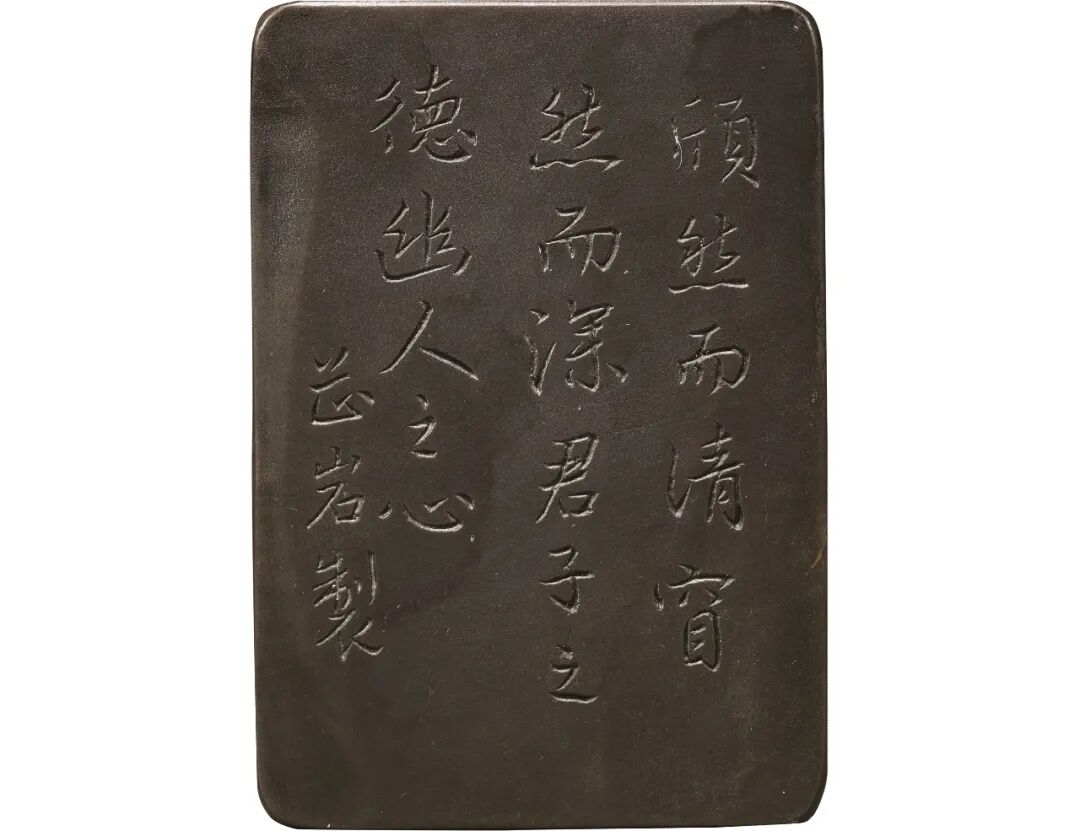 頎然而清窅
然而深君子之
德幽人之心
芷岩製